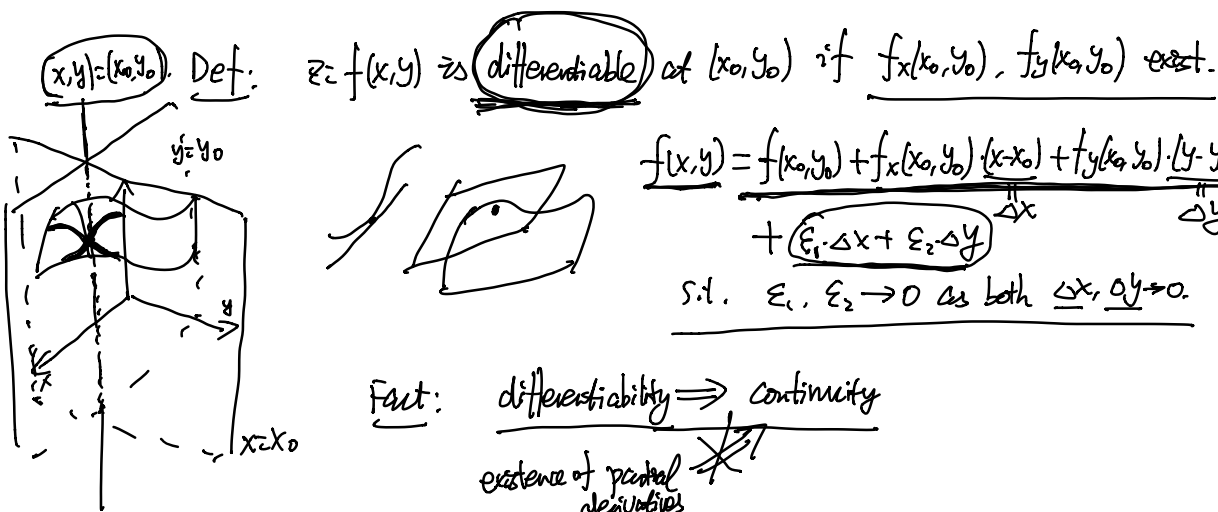 (x,y)=(x₀,y₀). Def: z=f(x,y) is differentiable at (x₀,y₀) if fx(x₀,y₀), fy(x₀,y₀) exist.
y=y₀
f(x,y) = f(x₀,y₀) + fx(x₀,y₀)·(x-x₀) + fy(x₀,y₀)·(y-y
Δx Δy
+ ε₁·Δx + ε₂·Δy
s.t. ε₁, ε₂ → 0 as both Δx, Δy→0.
y
x
x=x₀
Fact: differentiability ⟹ continuity
existence of partial
derivatives